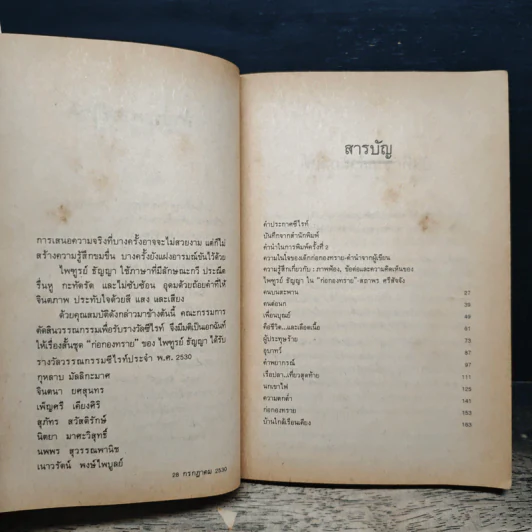 การเสนอความจริงที่บางครั้งอาจจะไม่สวยงาม แต่ก็ไม่
สร้างความรู้สึกขมขื่น บางครั้งยังแฝงอารมณ์ขันไว้ด้วย
ไพฑูรย์ ธัญญา ใช้ภาษาที่มีลักษณะกวี ประณีต
รื่นหู กะทัดรัด และไม่ซับซ้อน อุดมด้วยถ้อยคำที่ให้
จินตภาพ ประทับใจด้วยสี แสง และเสียง
ด้วยคุณสมบัติดังกล่าวมาข้างต้นนี้ คณะกรรมการ
ตัดสินวรรณกรรมเพื่อรับรางวัลซีไรท์ จึงมีมติเป็นเอกฉันท์
ให้เรื่องสั้นชุด "ก่อกองทราย" ของ ไพฑูรย์ ธัญญา ได้รับ
รางวัลวรรณกรรมซีไรท์ประจำ พ.ศ. 2530
กุหลาบ มัลลิกะมาศ
จินตนา ยศสุนทร
เพ็ญศรี เคียงศิริ
สุภัทร สวัสดิรักษ์
นิตยา มาศะวิสุทธิ์
นพพร สุวรรณพานิช
เนาวรัตน์ พงษ์ไพบูลย์
28 กรกฎาคม 2530
สารบัญ
คำประกาศซีไรท์
บันทึกจากสำนักพิมพ์
คำนำในการพิมพ์ครั้งที่ 2
ความในใจของเด็กก่อกองทราย-คำนำจากผู้เขียน
ความรู้สึกเกี่ยวกับ : ภาพฟ้อง, ข้อค่อนและความคิดเห็นของ
ไพฑูรย์ ธัญญา ใน "ก่อกองทราย"-สถาพร ศรีสัจจัง
คนบนสะพาน 27
คนต่อนก 35
เพื่อนบุณย์ 49
คือชีวิต...และเลือดเนื้อ 61
ผู้ประทุษร้าย 73
อุบาทว์ 87
คำพยากรณ์ 97
เรือปลา...เที่ยวสุดท้าย 111
นกเขาไฟ 125
ความตกต่ำ 141
ก่อกองทราย 153
บ้านใกล้เรือนเคียง 163